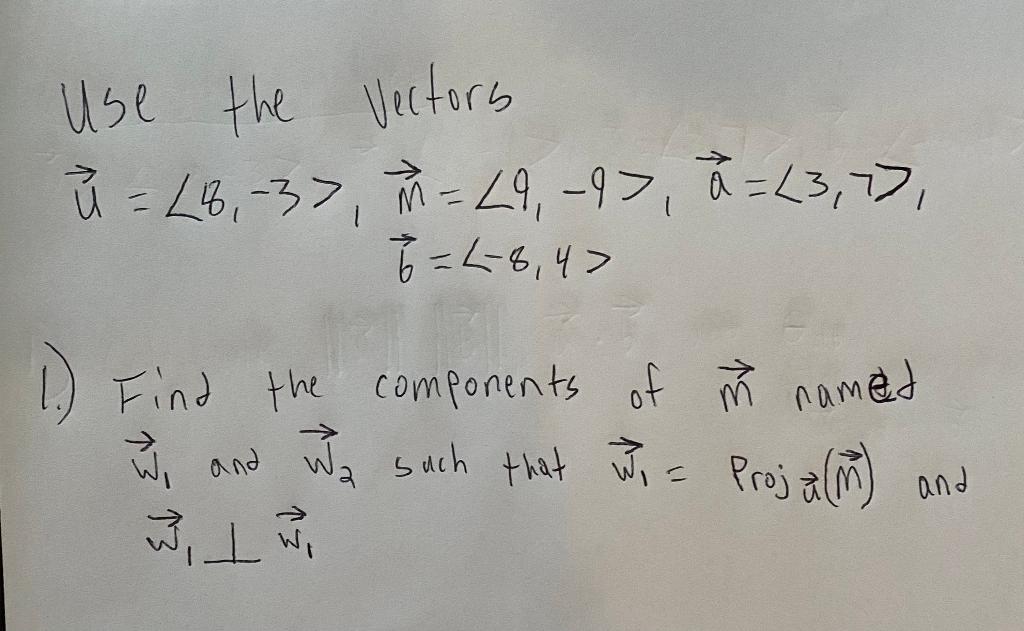 Use the Vectors
u⃗ = <8, -3>, m⃗ = <9, -9>, a⃗ = <3, 7>,
b⃗ = <-8, 4>
1.) Find the components of m⃗ named
w⃗₁ and w⃗₂ such that w⃗₁ = Proj a⃗(m⃗) and
w⃗₁ ⊥ w⃗₁